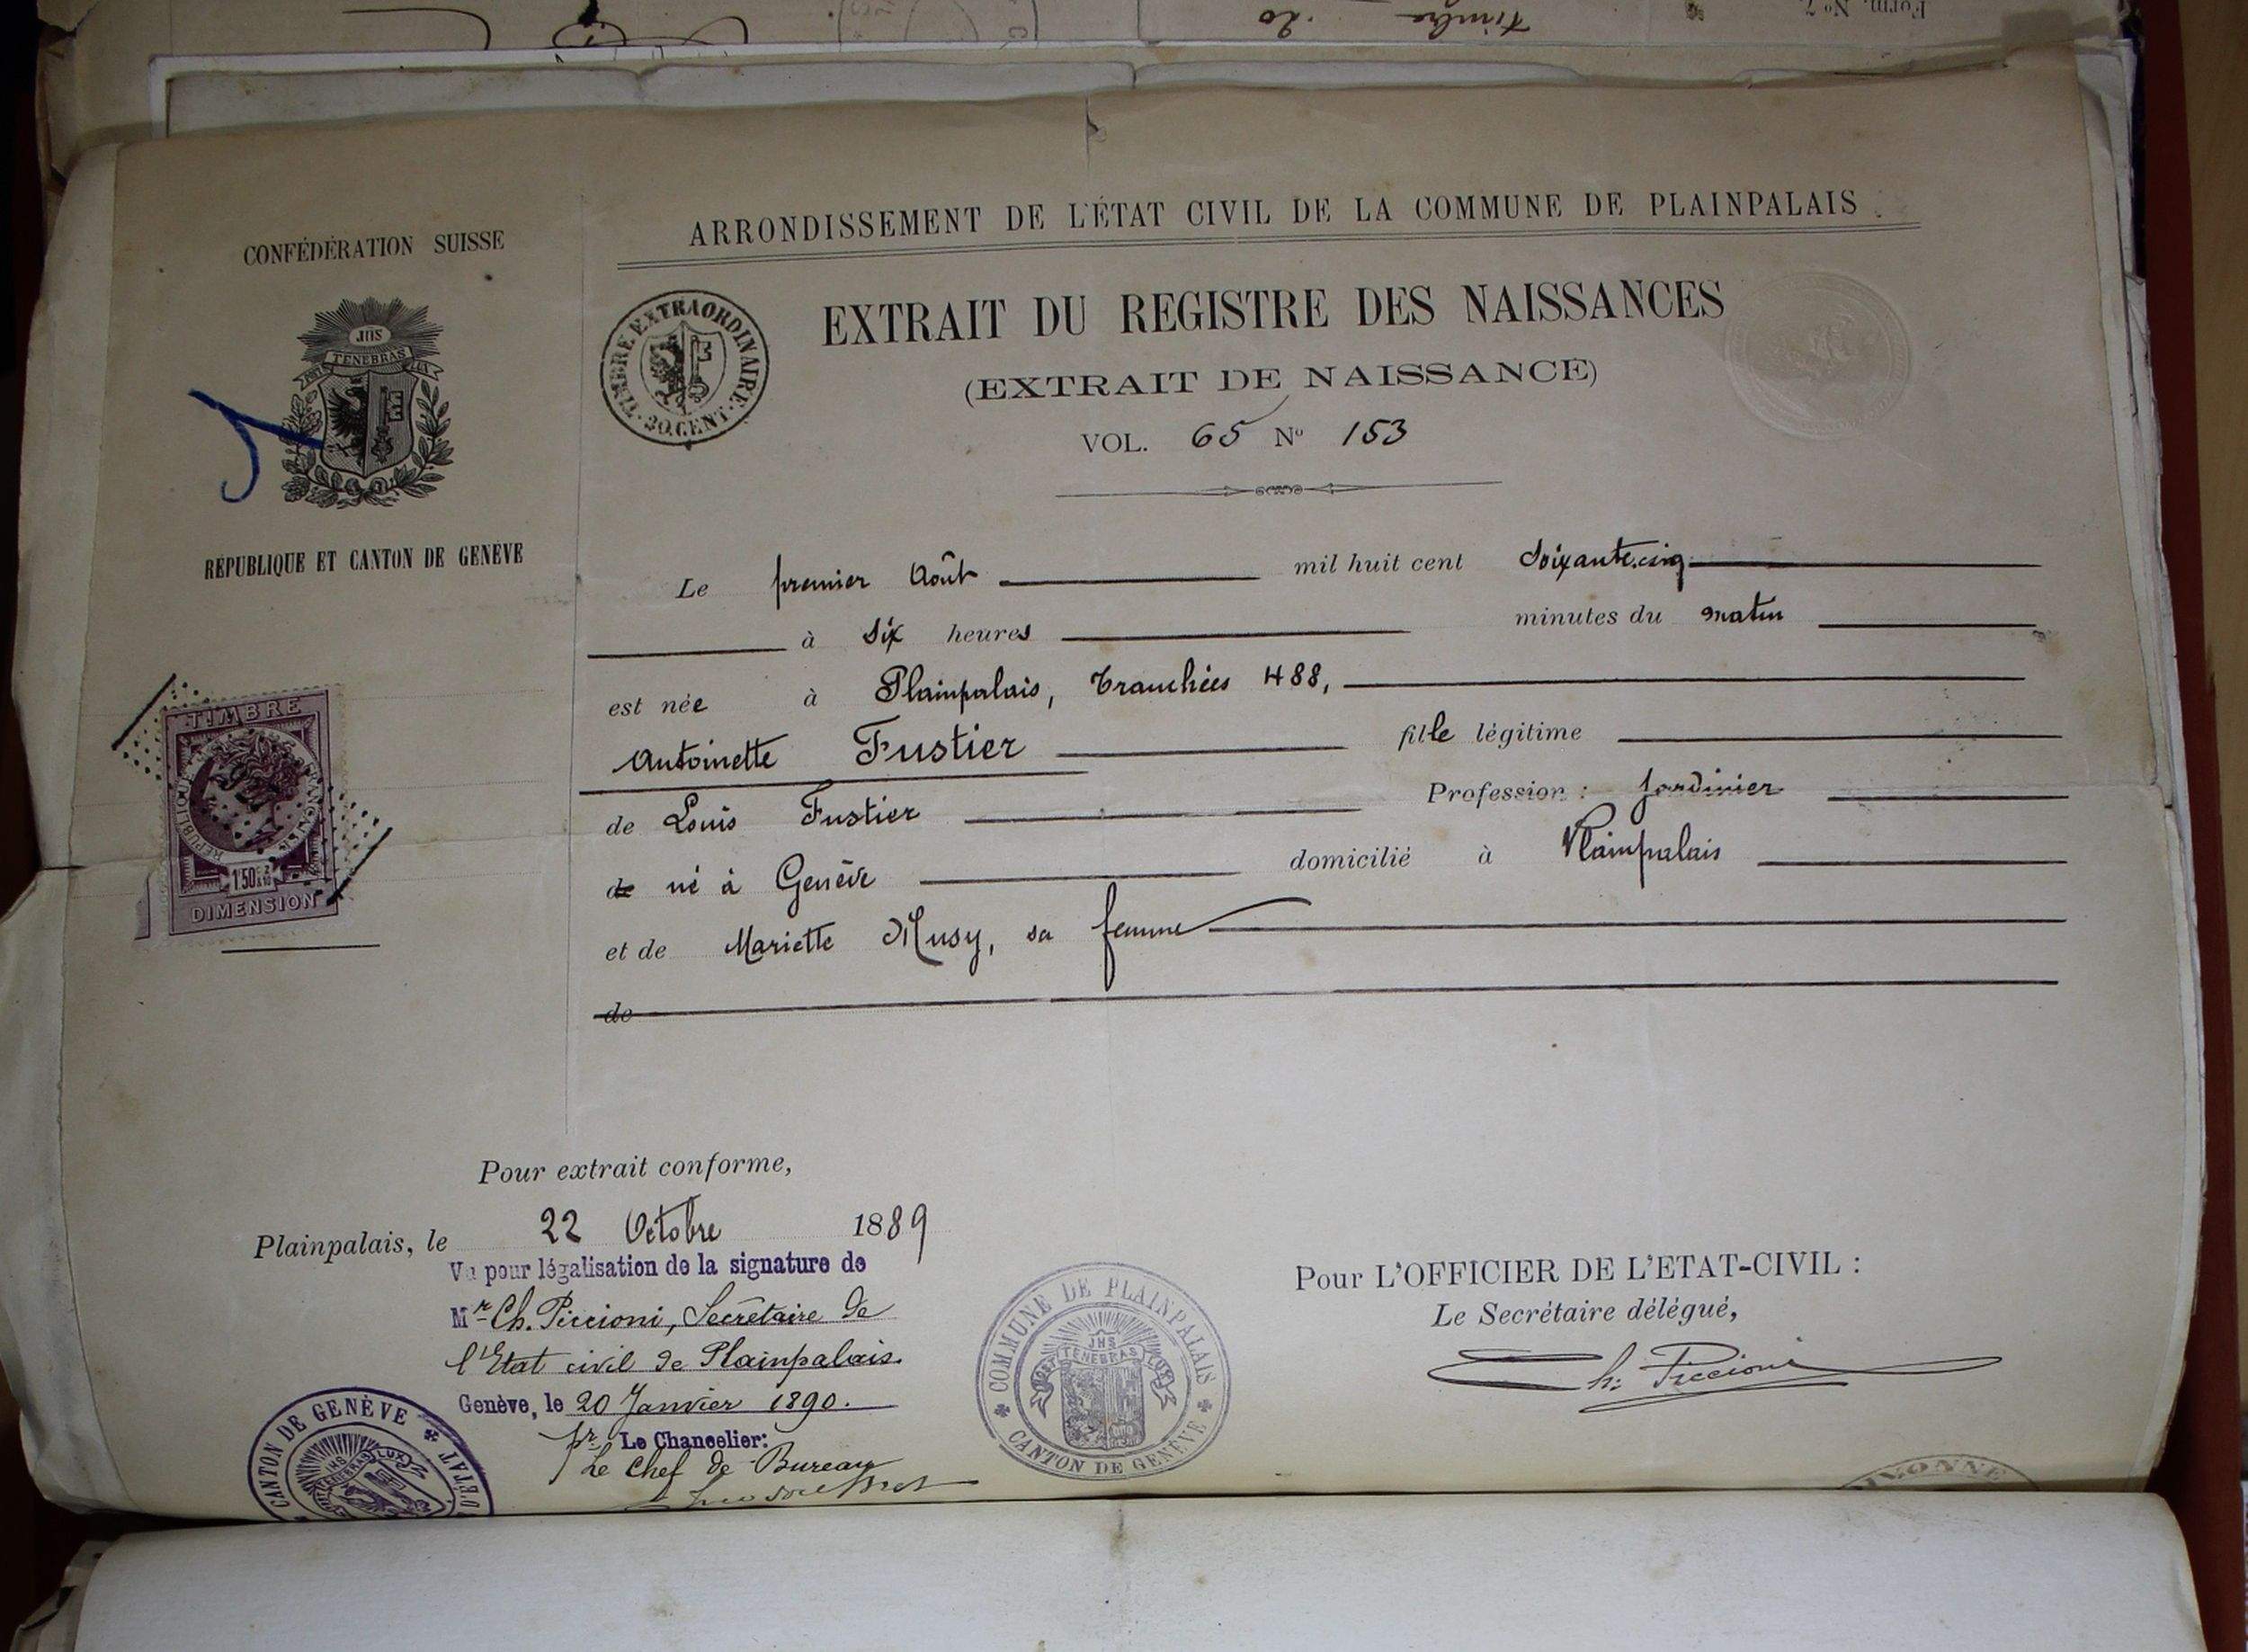 Form. No 7.
timbre 20
ARRONDISSEMENT DE L'ÉTAT CIVIL DE LA COMMUNE DE PLAINPALAIS
CONFÉDÉRATION SUISSE
JHS
POST TENEBRAS LUX
RÉPUBLIQUE ET CANTON DE GENÈVE
TIMBRE EXTRAORDINAIRE
20 CENT.
EXTRAIT DU REGISTRE DES NAISSANCES
(EXTRAIT DE NAISSANCE)
VOL. 65 No 153
Le premier Août mil huit cent Soixante.cinq
à Six heures minutes du matin
est née à Plainpalais, Tranchées 488,
Antoinette Fustier fille légitime
de Louis Fustier Profession : Jardinier
de né à Genève domicilié à Plainpalais
et de Mariette Musy, sa femme
de
TIMBRE
RÉPUBLIQUE FRANÇAISE
1f50c 2/10
DIMENSION
Pour extrait conforme,
Plainpalais, le 22 Octobre 1889
Vu pour légalisation de la signature de
Mr Ch. Piccioni, Secrétaire de
l'Etat civil de Plainpalais.
Genève, le 20 Janvier 1890.
pr. Le Chancelier:
Le Chef de Bureau
CANTON DE GENÈVE
D'ÉTAT
JHS
POST TENEBRAS LUX
COMMUNE DE PLAINPALAIS
JHS
POST TENEBRAS LUX
CANTON DE GENÈVE
Pour L'OFFICIER DE L'ETAT-CIVIL :
Le Secrétaire délégué,
Ch: Piccioni